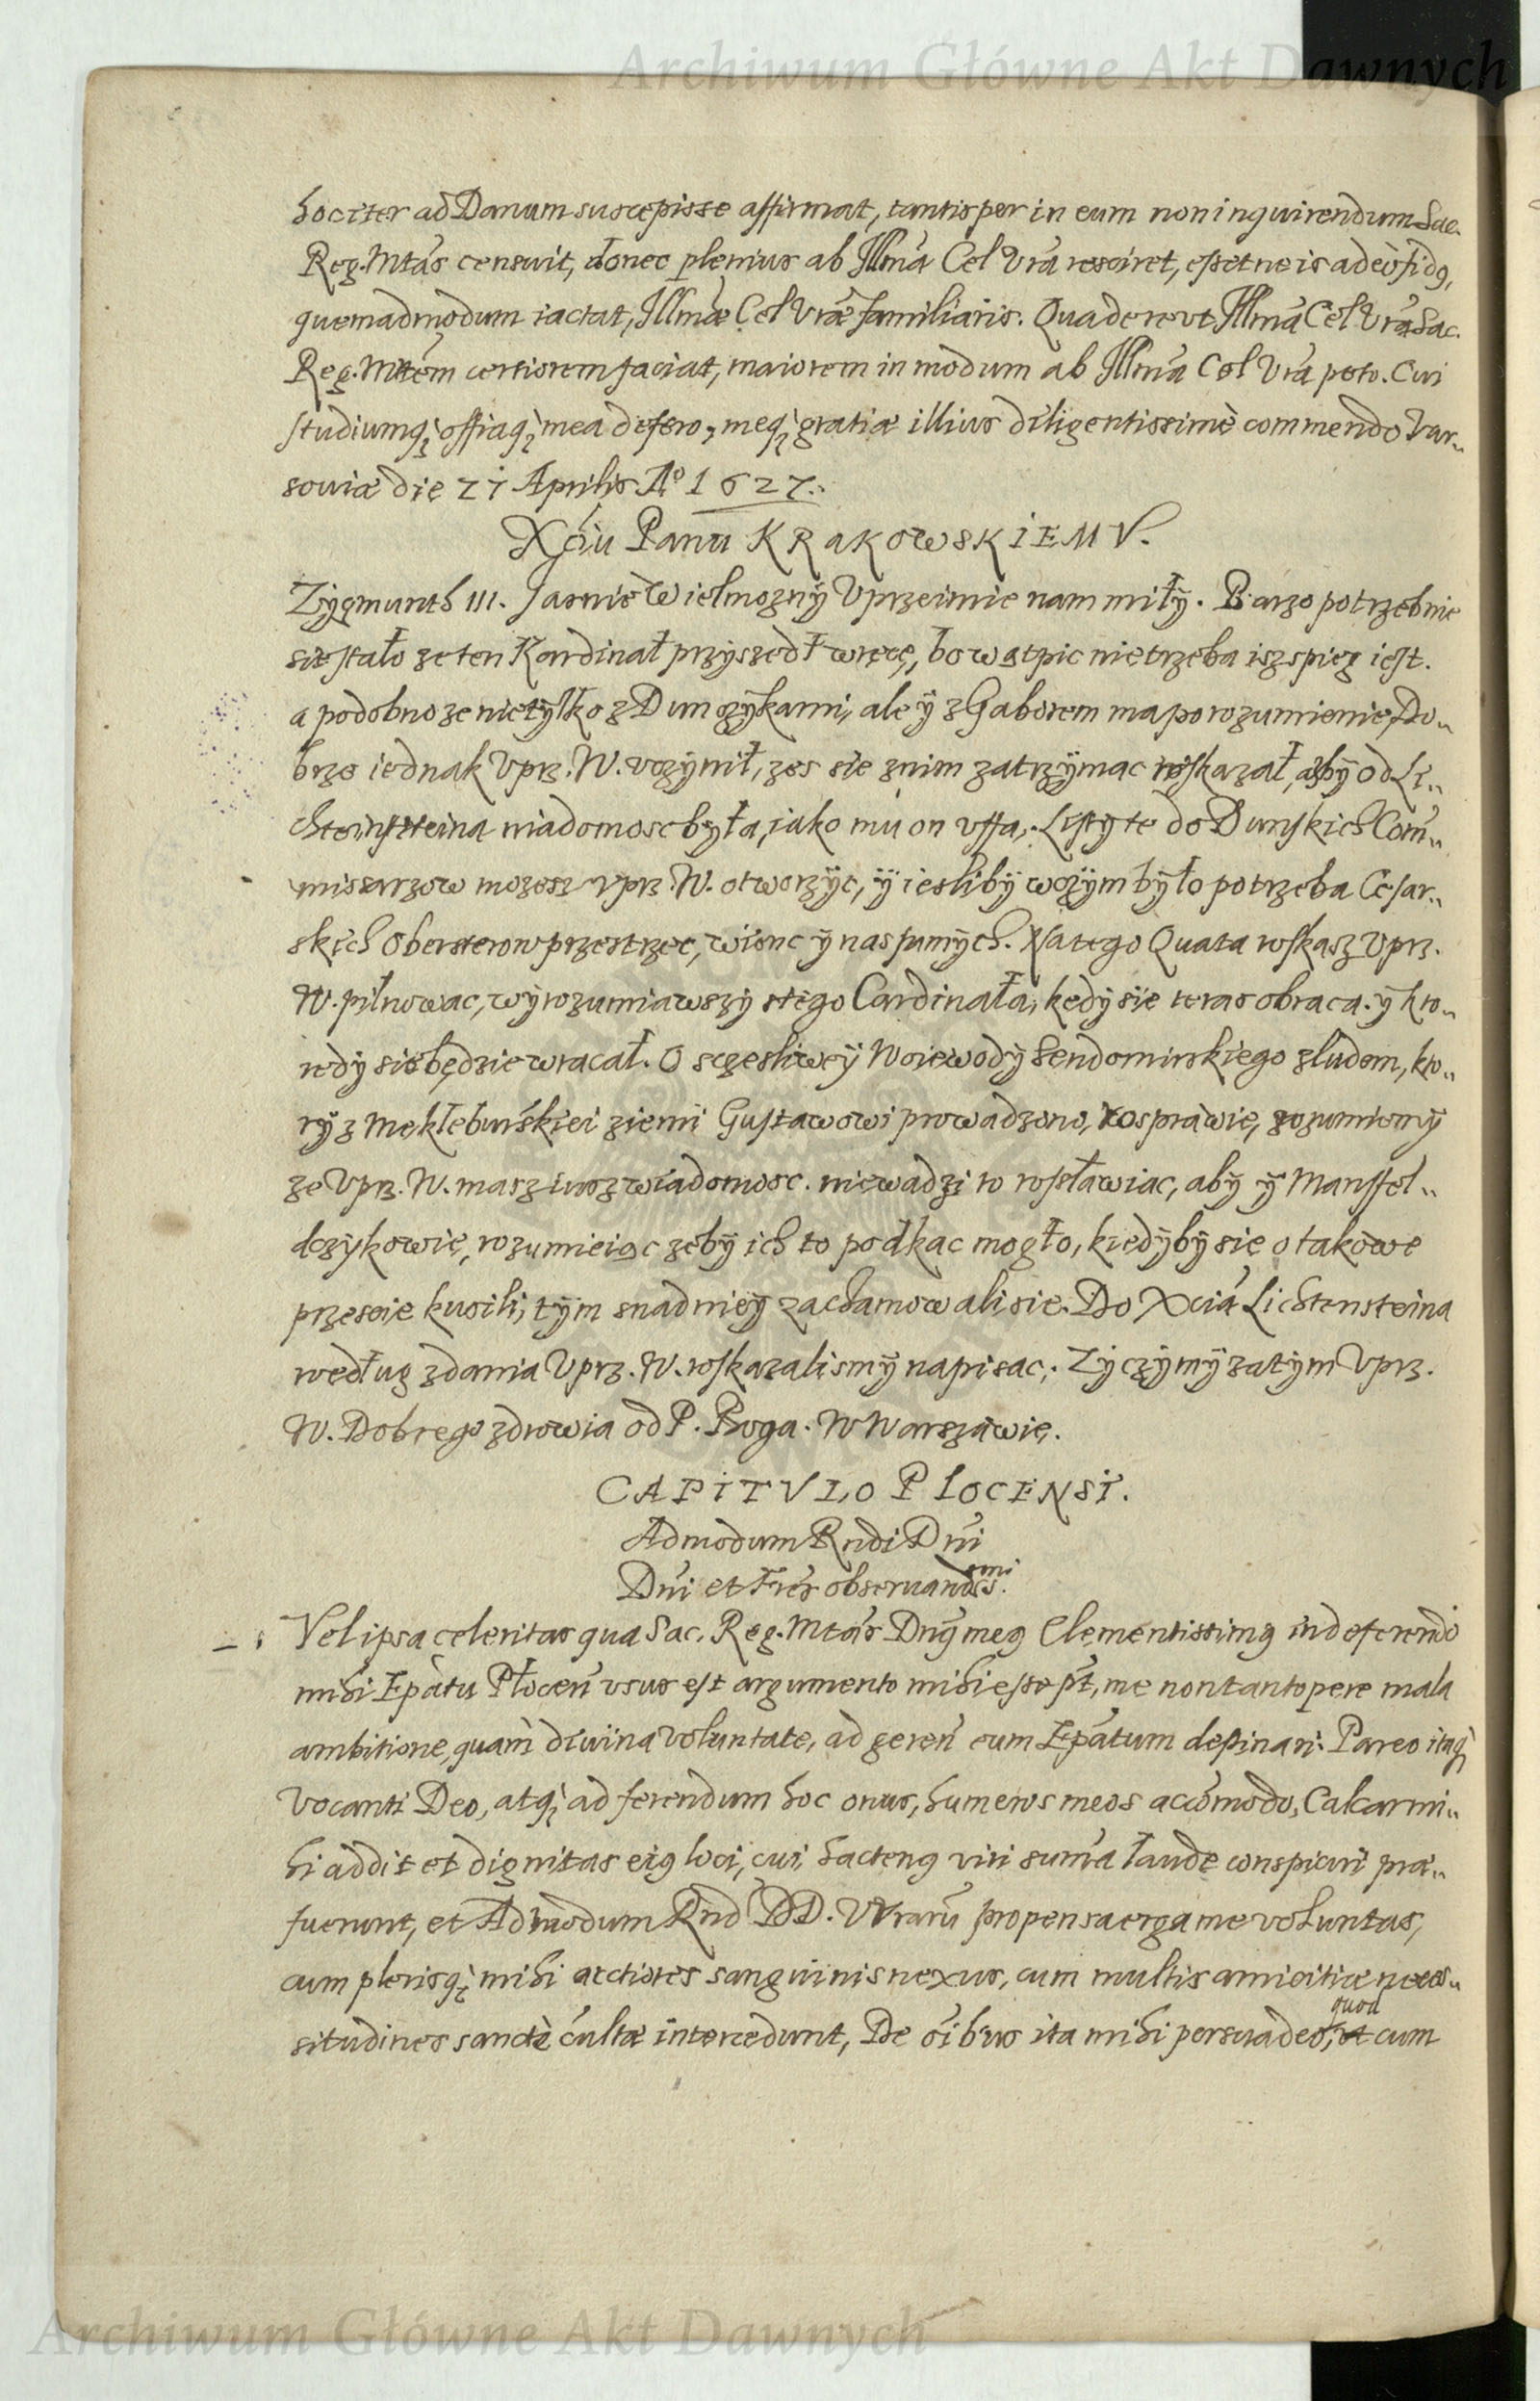 Archiwum Główne Akt Dawnych
hoc iter ad Danum suscepisse affirmat, tantisper in eum non inquirendum Sac.
Reg. Mtas censuit, donec plenius ab Illma Cel Vra resciret, esset ne is adeò fidq,
quemadmodum iactat, Illmæ Cel Vræ familiaris. Qua de re vt Illma Cel Vra Sac.
Reg. Mtem certiorem faciat, maiorem in modum ab Illma Cel Vra peto. Cui
studiumq; offiaq; mea defero, meq; gratiæ illius diligentissimè commendo Var„
souiæ die 21 Aprilis Aº 1627.
Xciu Panu KRAKOWSKIEMV.
Zygmunth III. Jasnie Wielmozny Vprzeimie nam miły. Barzo potrzebnie
sie stało ze ten Kardinał przyszedł w ręcę, bo wątpic nie trzeba isz spieg iest.
a podobno ze nie tylko z Dunczykami, ale y z Gaborem ma porozumienie, Do„
brze iednak Vprz. W. vczynił, zes sie z nim zatrzymac roskazał, aby od Li„
chteinsteina wiadomosc była, iako mu on vffa. Listy te do Dunskich Com„
missarzow mozesz vprz. W. otworzyc, y iesliby w czym było potrzeba Cesar„
skich Obersterow przestrzec, wienc y nas samych. Na tego Quata roskasz Vprz.
W. pilnowac, wyrozumiawszy s tego Cardinała, kędy sie teras obraca. y kto„
rędy sie będzie wracał. O sczesliwey Woiewody Sendomirskiego z ludem, kto„
ry z Mekleburskiei ziemi Gustawowi prowadzono, rosprawie, rozumiemy
ze Vprz. W. masz iusz wiadomosc. nie wadzi to rosławiac, aby y Mansfel„
dczykowie, rozumieiąc zeby ich to podkac mogło, kiedyby sie o takowe
przescie kusili, tym snadniey zachamowali sie. Do Xcia Lichtensteina
według zdania Vprz. W. roskazalismy napisac. Zyczymy zatym Vprz.
W. Dobrego zdrowia od P. Boga. W Warszawie.
CAPITVLO PLOCENSI.
Admodum Rndi Dni
Dni et Fres obseruandssmi.
Vel ipsa celeritas qua Sac. Reg. Mtas Dnq meq Clementissimq in deferendo
mihi Epatu Płocen vsus est argumento mihi esse pt, me non tantopere mala
ambitione, quam diuina voluntate, ad geren eum Epatum destinari. Pareo itaq;
vocanti Deo, atq; ad ferendum hoc onus, humeros meos accomodo, Calcar mi„
hi addit et dignitas eiq loci, cui hactenq viri suma laude conspicui præ„
fuerunt, et Admodum Rnd DD. VVraru propensa erga me voluntas,
cum plerisq; mihi arctiores sanguinis nexus, cum multis amicitiæ neces„
situdines sanctè cultæ intercedunt, De oibus ita mihi persuadeo, quod cum
Archiwum Główne Akt Dawnych